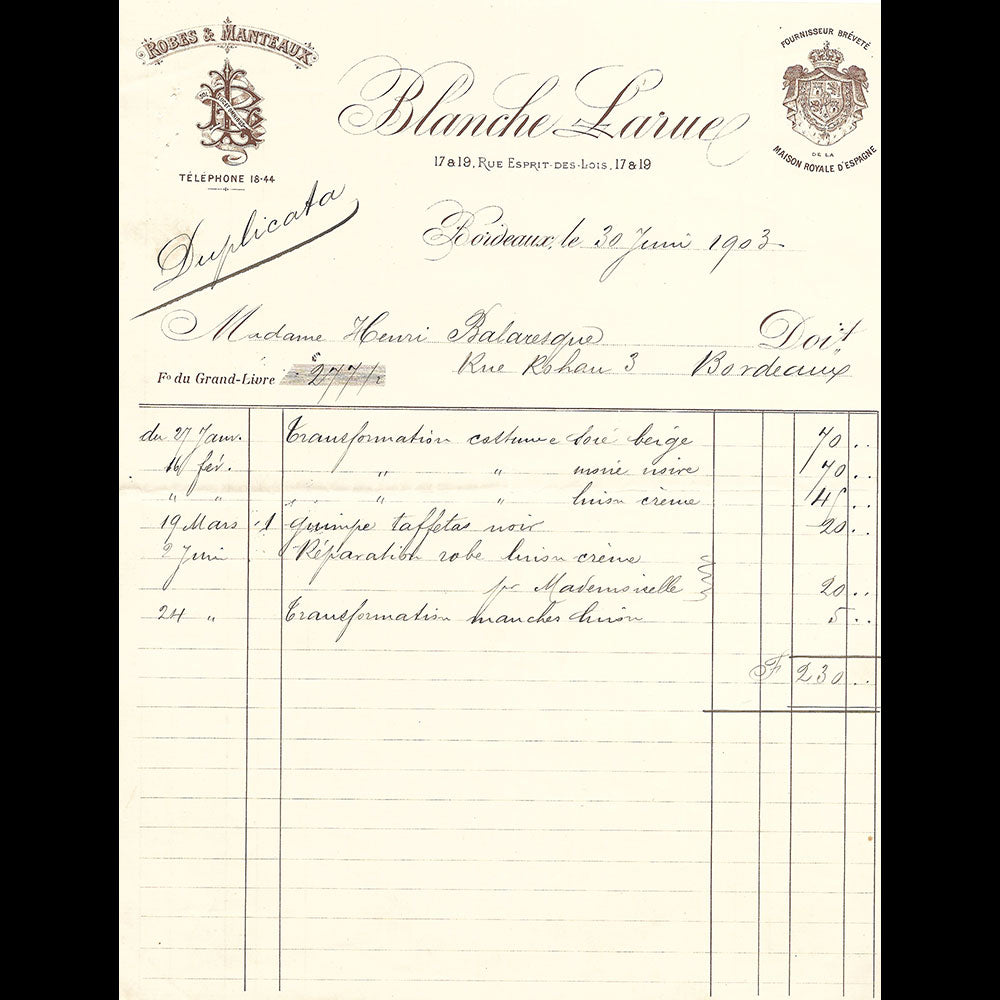 ROBES & MANTEAUX
TÉLÉPHONE 18-44
Blanche Larue
17 & 19, RUE ESPRIT-DES-LOIS, 17 & 19
FOURNISSEUR BRÉVETÉ
DE LA
MAISON ROYALE D'ESPAGNE
Duplicata
Bordeaux, le 30 Juin 1903
Madame Henri Balaresque Doit
Rue Rohan 3 Bordeaux
Fº du Grand-Livre 277
du 27 Janv. Transformation costume soie beige 70 ..
16 fév. " " moiré noire 70 ..
" " " " linon crème 45 ..
19 Mars 1 guimpe taffetas noir 20 ..
2 Juin Réparation robe linon crème
pr Mademoiselle 20 ..
24 " Transformation manches linon 5 ..
F 230 ..